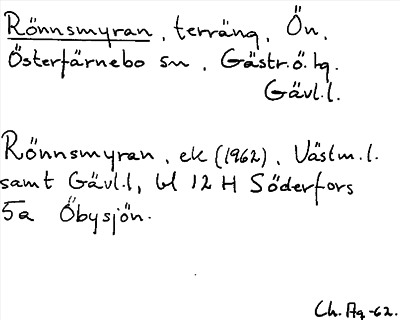 Rönnsmyran, terräng, Ön,
Österfärnebo sn, Gästr.ö.tg.
Gävl.l.
Rönnsmyran, ek (1962), Västm.l.
samt Gävl.l, bl 12 H Söderfors
5a Öbysjön.
Ch.Ag-62.